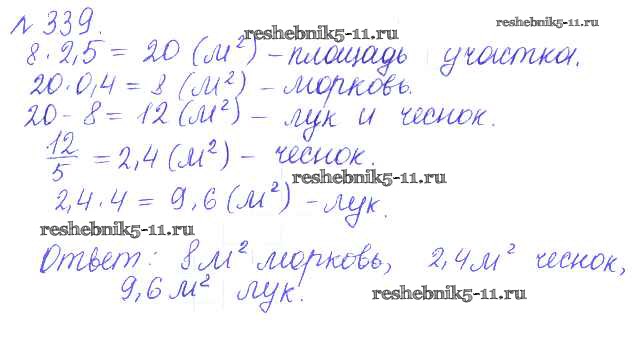 № 339.
reshebnik5-11.ru
8 · 2,5 = 20 (м²) – площадь участка.
20 · 0,4 = 8 (м²) – морковь.
20 - 8 = 12 (м²) – лук и чеснок.
12/5 = 2,4 (м²) – чеснок.
reshebnik5-11.ru
2,4 · 4 = 9,6 (м²) – лук.
reshebnik5-11.ru
Ответ: 8 м² морковь, 2,4 м² чеснок,
9,6 м² лук.
reshebnik5-11.ru